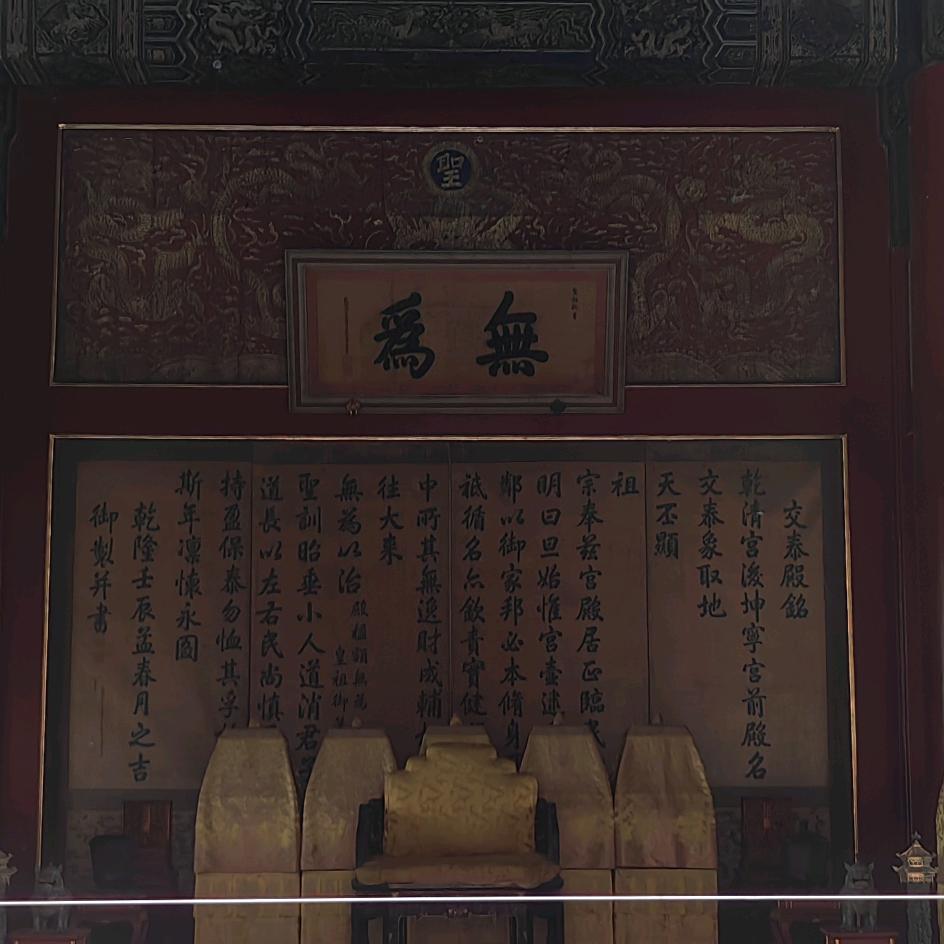 聖
無為
交泰殿銘
乾清宮後坤寧宮前殿名
交泰象取地
天丕顯
祖
宗奉茲宮殿居正臨
明曰旦始惟宮壼達
鄰以御家邦必本脩身
祗循名六欽責實健
中所其無逸財成輔
往大來
無為以治 殿楣顏無為 皇祖御
聖訓昭垂小人道消君
道長以左右民尚慎
持盈保泰勿恤其孚
斯年凜懷永圖
乾隆壬辰孟春月之吉
御製并書